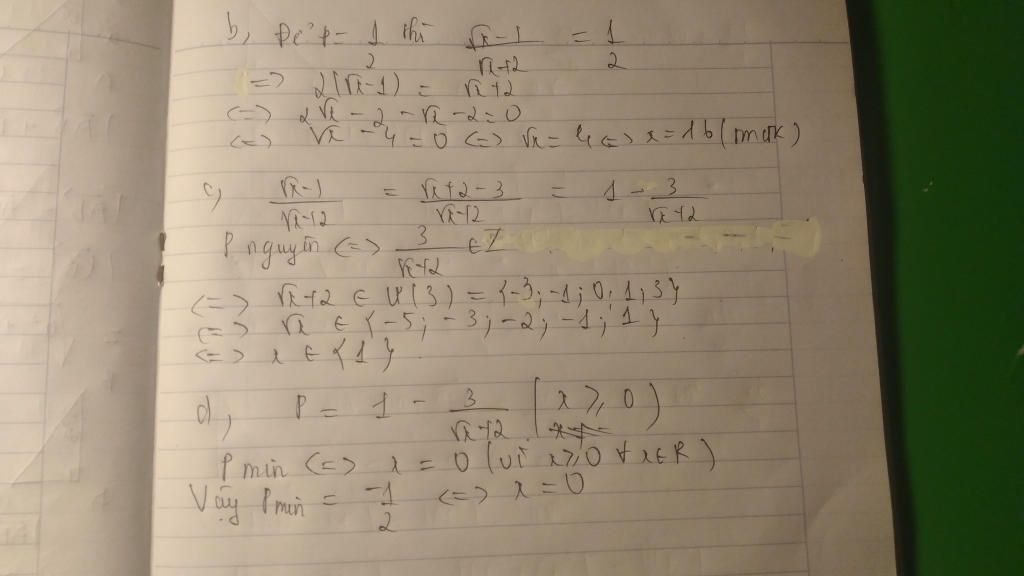 b, Để P = 1/2 thì (√x-1)/(√x+2) = 1/2
=> 2(√x-1) = √x+2
<=> 2√x - 2 - √x - 2 = 0
<=> √x - 4 = 0 <=> √x = 4 <=> x = 16 (tmđk)
c, (√x-1)/(√x+2) = (√x+2-3)/(√x+2) = 1 - 3/(√x+2)
P nguyên <=> 3/(√x+2) ∈ Z
<=> √x+2 ∈ Ư(3) = {-3; -1; 0; 1; 3}
<=> √x ∈ {-5; -3; -2; -1; 1}
<=> x ∈ {1}
d, P = 1 - 3/(√x+2) (x ≥ 0)
P min <=> x = 0 (vì x ≥ 0 ∀ x ∈ R)
Vậy Pmin = -1/2 <=> x = 0